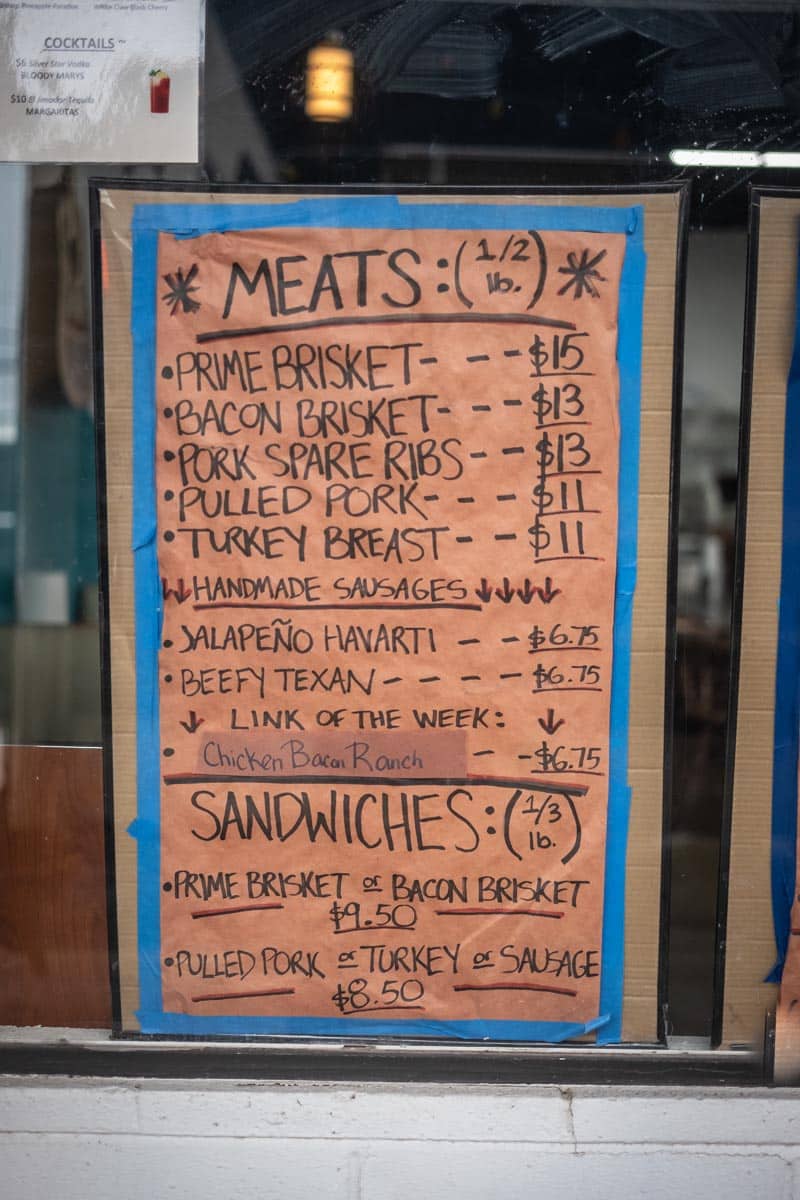 White Claw Black Cherry
COCKTAILS ~
$6 Silver Star Vodka
BLOODY MARYS
$10 El Jimador Tequila
MARGARITAS
* MEATS: (1/2 lb.) *
•PRIME BRISKET- - - $15
•BACON BRISKET- - - $13
•PORK SPARE RIBS- - $13
•PULLED PORK- - - $11
•TURKEY BREAST- - $11
↓↓HANDMADE SAUSAGES↓↓↓↓
•JALAPEÑO HAVARTI - - $6.75
•BEEFY TEXAN- - - - $6.75
↓ LINK OF THE WEEK: ↓
• Chicken Bacon Ranch - -$6.75
SANDWICHES: (1/3 lb.)
•PRIME BRISKET or BACON BRISKET
$9.50
•PULLED PORK or TURKEY or SAUSAGE
$8.50